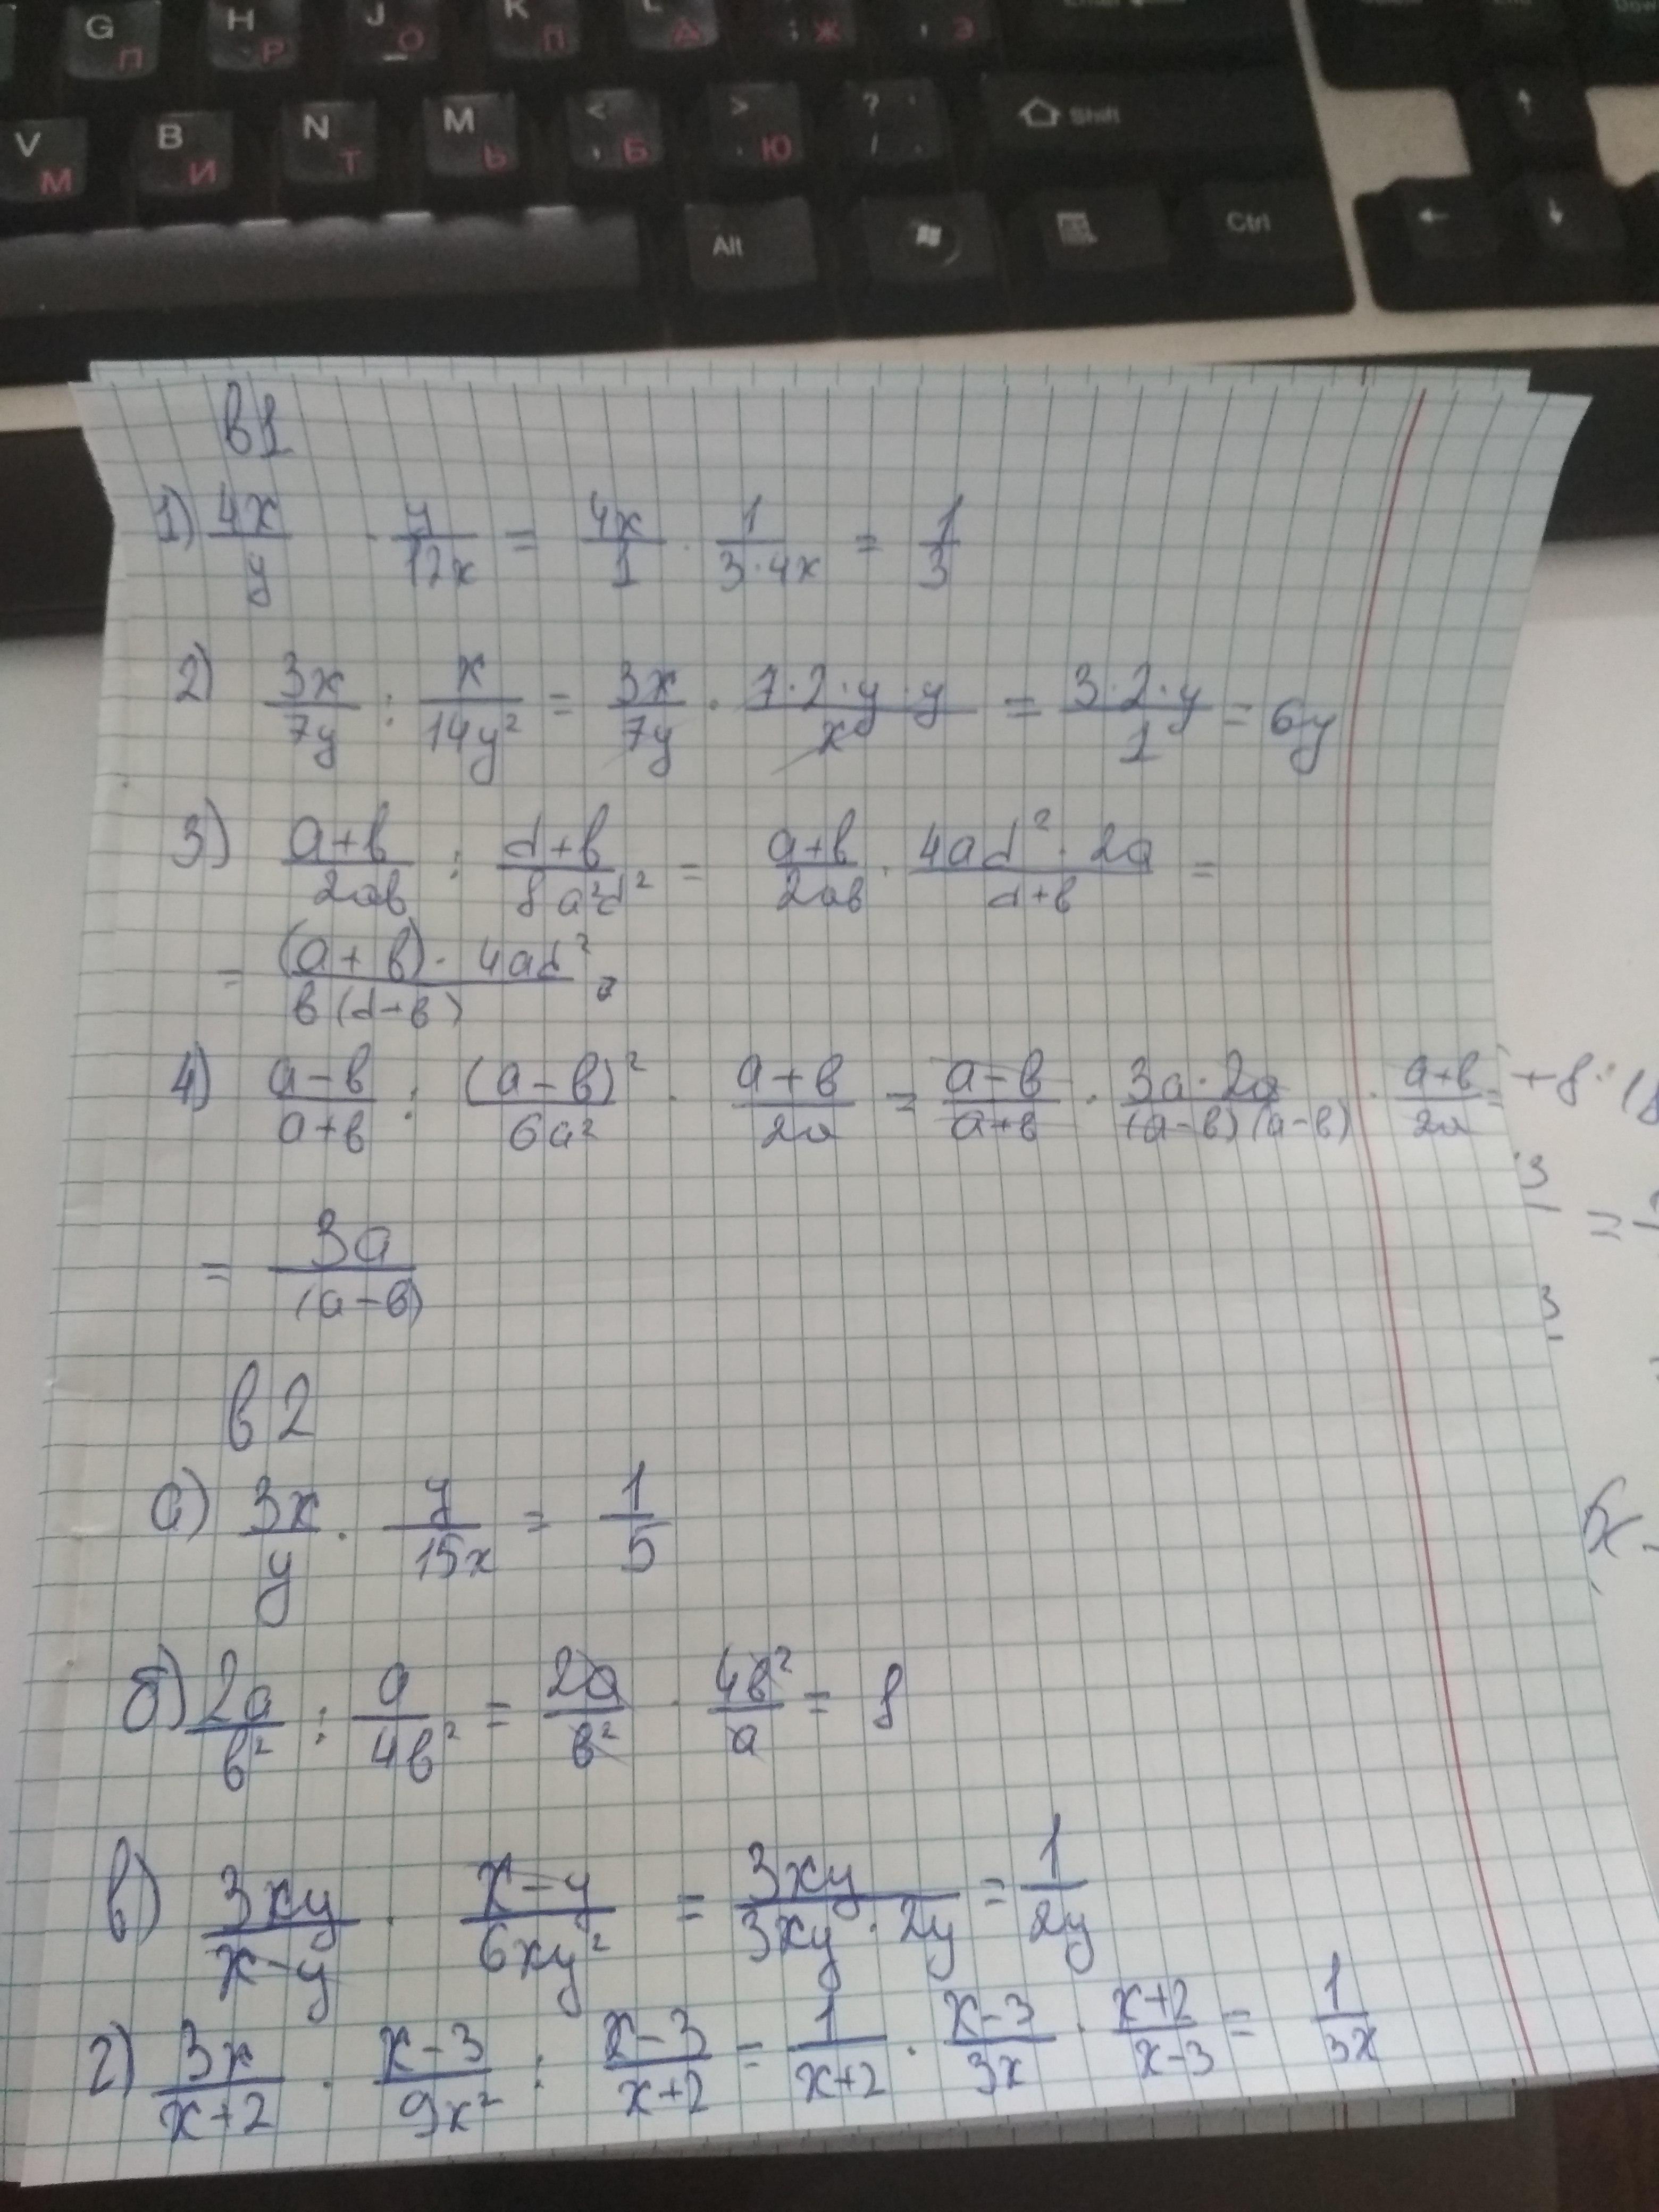 G П H Р J О K П L Д ; Ж , Э
V М B И N Т M Ь < , Б > . Ю ? / . Shift
Alt Ctrl
в1
1) 4x/y · y/12x = 4x/1 · 1/3·4x = 1/3
2) 3x/7y : x/14y² = 3x/7y · 7·2·y·y/x = 3·2·y/1 = 6y
3) a+b/2ab : d+b/8a²d² = a+b/2ab · 4ad²·2a/d+b =
= (a+b)·4ad²/b(d+b)
4) a-b/a+b : (a-b)²/6a² · a+b/2a = a-b/a+b · 3a·2a/(a-b)(a-b) · a+b/2a =
= 3a/(a-b)
в2
а) 3x/y · y/15x = 1/5
б) 2a/b² : a/4b² = 2a/b² · 4b²/a = 8
в) 3xy/x-y · x-y/6xy² = 3xy/3xy·2y = 1/2y
г) 3x/x+2 · x-3/9x² : x-3/x+2 = 1/x+2 · x-3/3x · x+2/x-3 = 1/3x